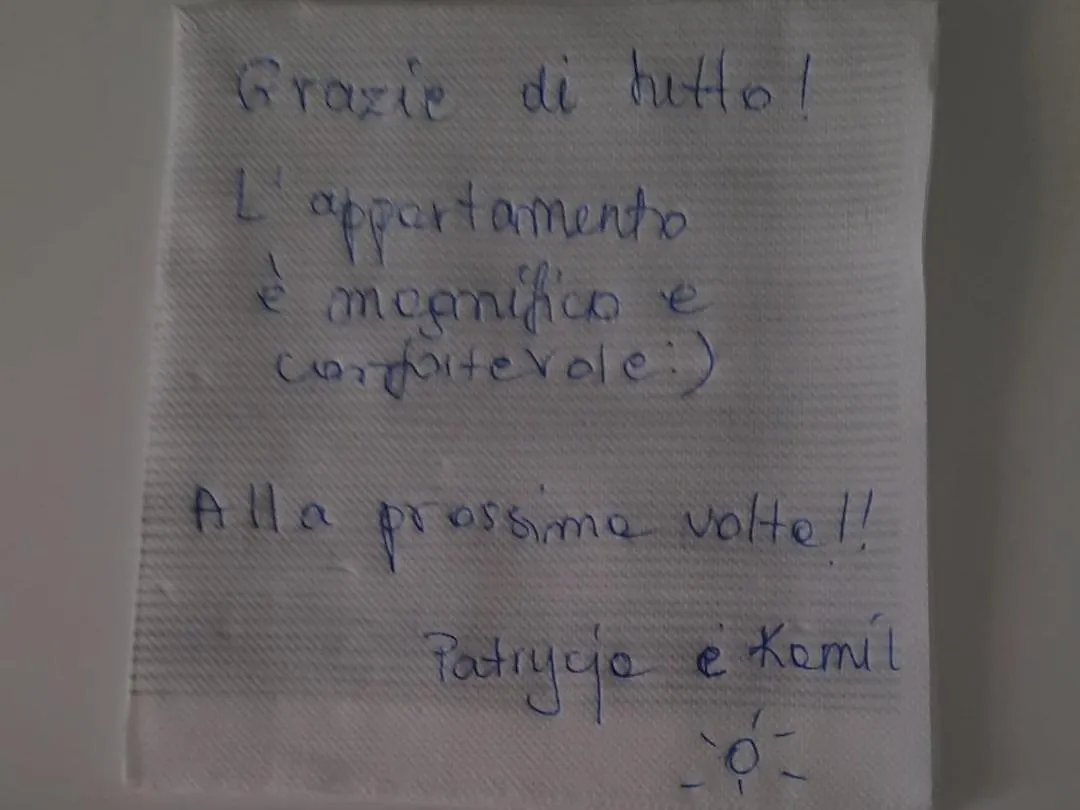 Grazie di tutto!
L'appartamento
è magnifico e
confortevole:)
Alla prossima volta!!
Patrycja e Kamil